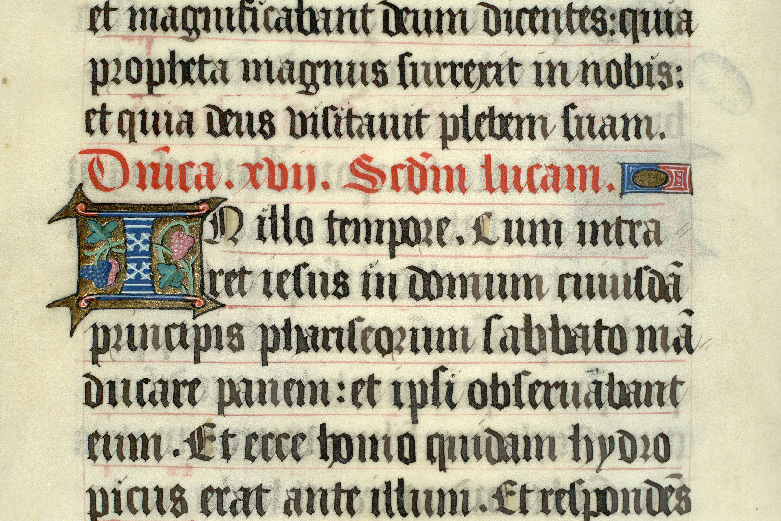 et magnificabant deum dicentes: quia
propheta magnus surrexit in nobis:
et quia deus visitauit plebem suam.
Dn̄ica. xvij. Scdm̄ lucam.
IN illo tempore. Cum intra
ret iesus in domum cuiusdā
principis phariseorum sabbato mā
ducare panem: et ipsi obseruabant
eum. Et ecce homo quidam hydro
picus erat ante illum. Et respondēs